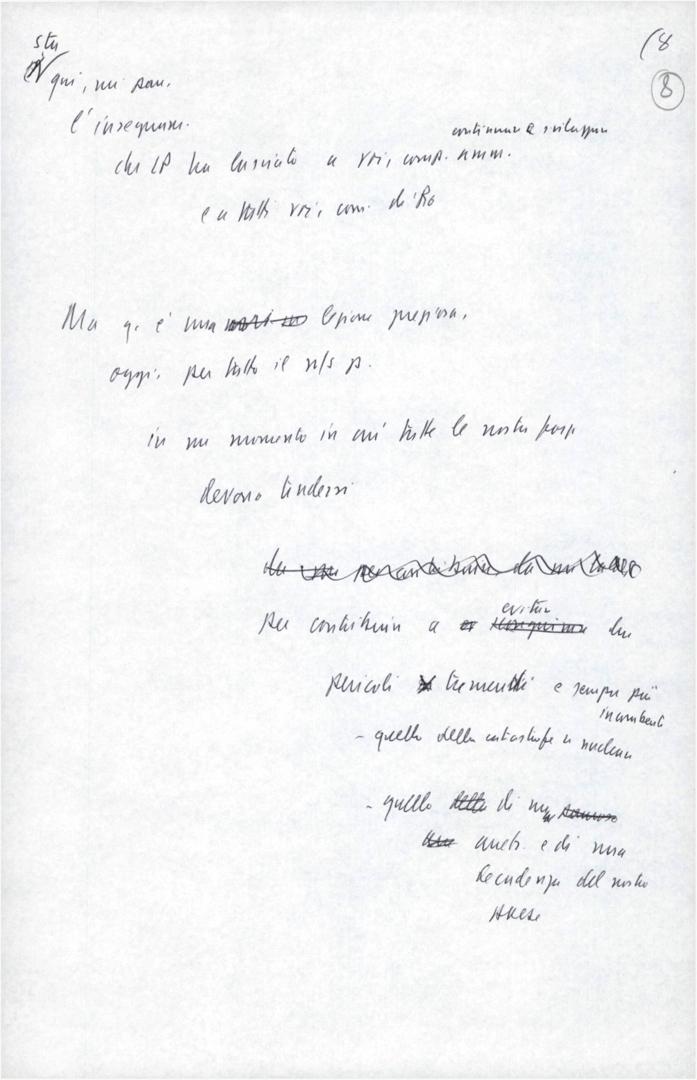 (8
8
sta
qui, mi pare,
l'insegnam.
continuare e sviluppare
che LP ha lasciato a voi, comp. amm.
e a tutti voi, com. di Ro
Ma q. è una lezione preziosa,
oggi, per tutto il n/s p.
in un momento in cui tutte le nostre forze
devono tendersi
evitare
per contribuire a due
pericoli tremendi e sempre più
incombenti
- quello della catastrofe nucleare
- quello di una
e di una
decadenza del nostro
paese